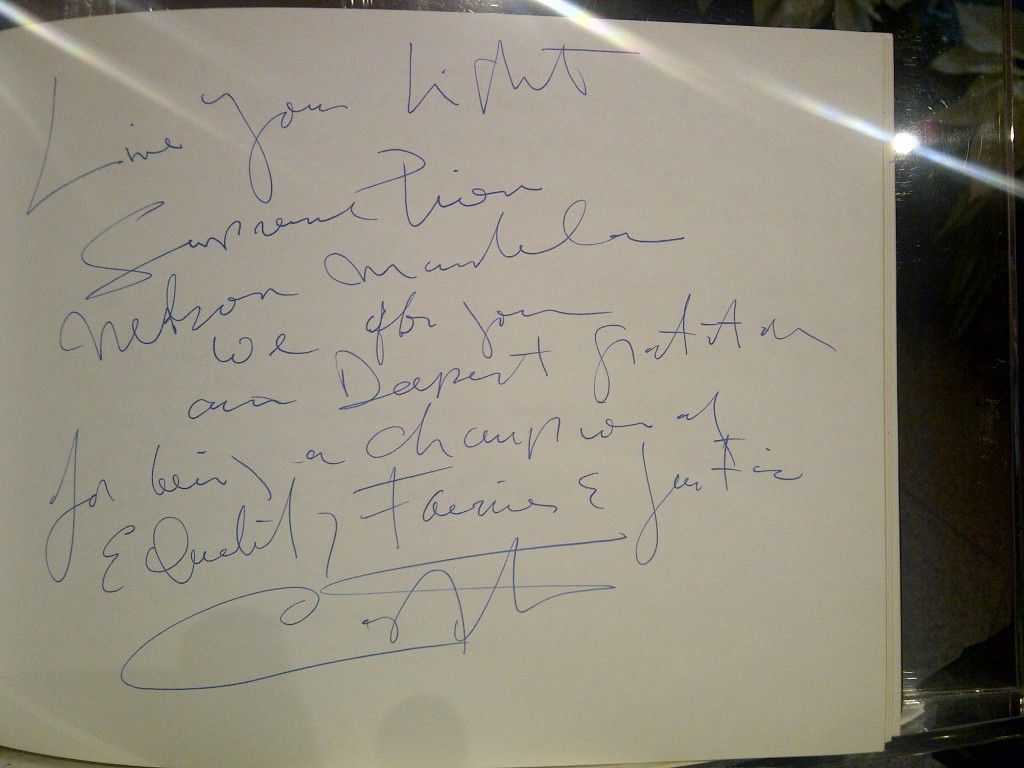 Live your light
Supreme Lion
Nelson Mandela
we offer you
our Deepest gratitude
for being a champion of
Equality, Fairness & Justice